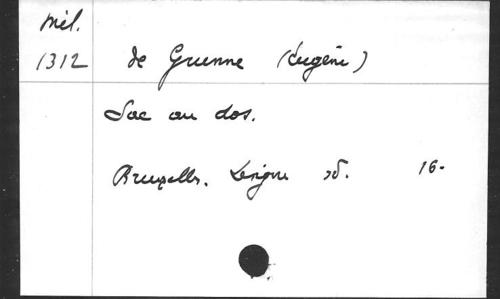 Mél.
1312 de Grunne (Eugène)
Sac au dos.
Bruxelles. Lesigne sd. 16-